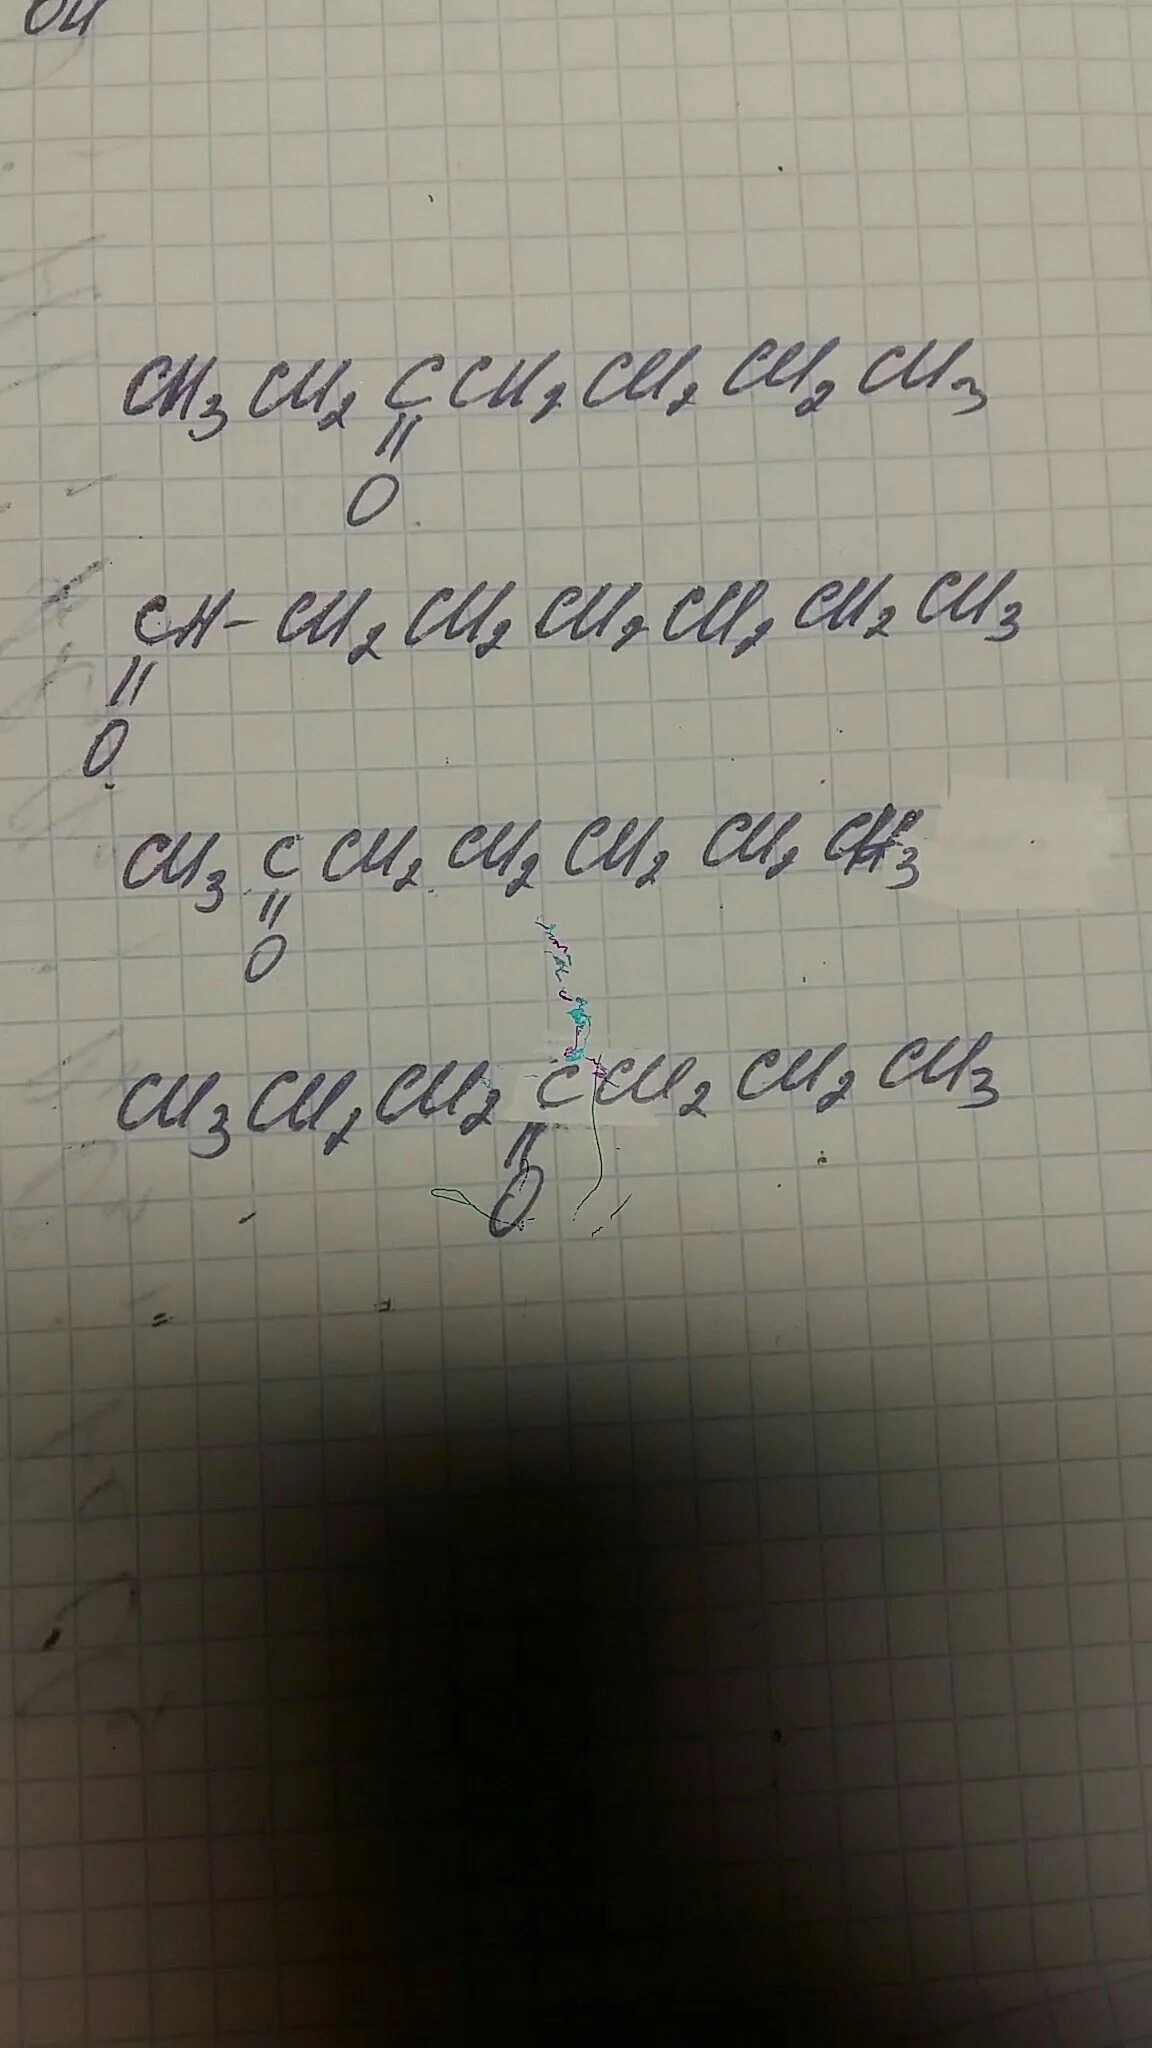 OH
CH3 CH2 C CH2 CH2 CH2 CH3
||
O
CH - CH2 CH2 CH2 CH2 CH2 CH3
||
O
CH3 C CH2 CH2 CH2 CH2 CH3
||
O
CH3 CH2 CH2 C CH2 CH2 CH3
||
O